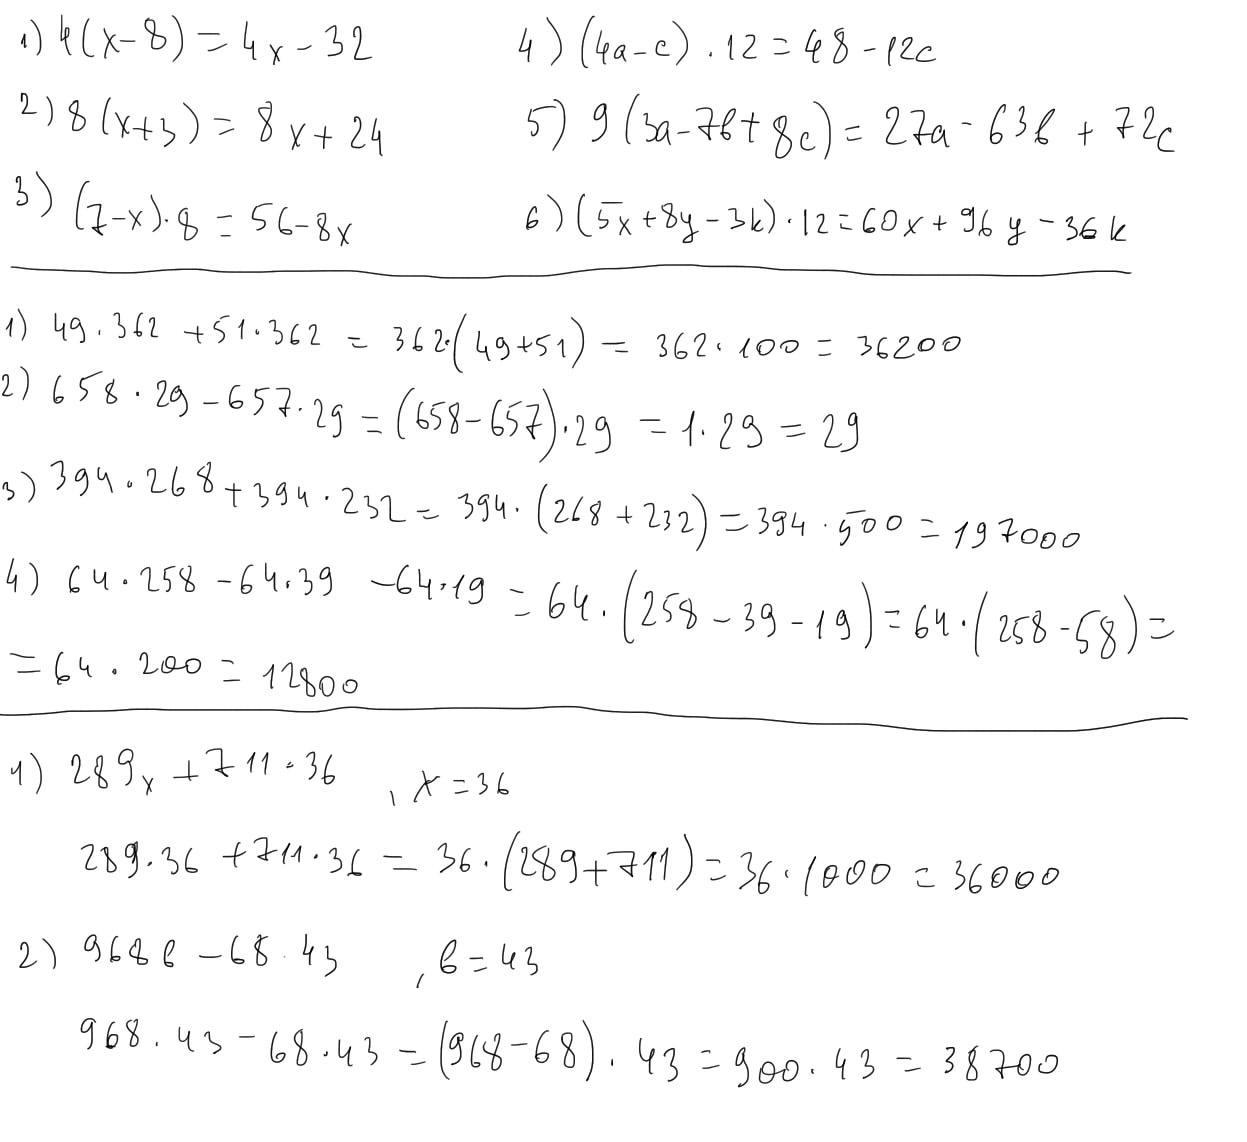 1) 4(x-8) = 4x - 32
2) 8(x+3) = 8x + 24
3) (7-x)·8 = 56-8x
4) (4a-c)·12 = 48-12c
5) 9(3a-7b+8c) = 27a-63b+72c
6) (5x+8y-3k)·12=60x+96y-36k
1) 49·362+51·362 = 362·(49+51) = 362·100 = 36200
2) 658·29-657·29 = (658-657)·29 = 1·29 = 29
3) 394·268+394·232 = 394·(268+232) = 394·500 = 197000
4) 64·258-64·39-64·19 = 64·(258-39-19) = 64·(258-58) =
= 64·200 = 12800
1) 289x+711·36, x=36
289·36+711·36 = 36·(289+711) = 36·1000 = 36000
2) 968b-68·43, b=43
968·43-68·43 = (968-68)·43 = 900·43 = 38700